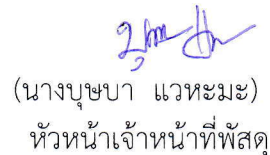 (นางบุษบา แวหะมะ)
หัวหน้าเจ้าหน้าที่พัสดุ